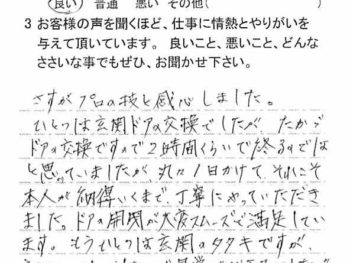 良い 普通 悪い その他(
3 お客様の声を聞くほど、仕事に情熱とやりがいを
与えて頂いています。 良いこと、悪いこと、どんな
ささいな事でもぜひ、お聞かせ下さい。
さすがプロの技と感心しました。
ひとつは玄関ドアの交換でしたが、たかが
ドアの交換ですので2時間くらいで終るのでは
と思っていましたが丸々1日かけて、それこそ
本人が納得いくまで、丁寧にやっていただき
ました。ドアの開閉が大変スムーズで満足してい
ます。もうひとつは玄関のタタキですが、